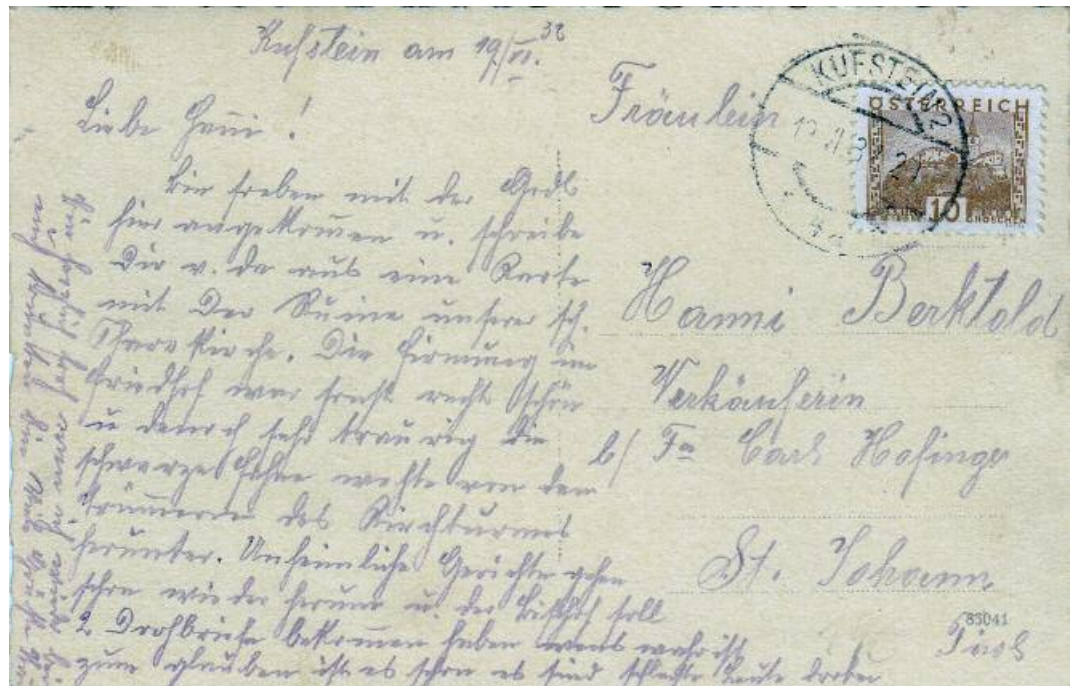 Kufstein am 19/VI. 32
Liebe Hanni!
Bin soeben mit der Gretl
hier angekommen u. schreibe
Dir v. da aus eine Karte
mit der Ruine unserer sch.
Pfarrkirche. Die Firmung im
Friedhof war sonst recht schön
u dennoch sehr traurig die
schwarze Fahne wehte von den
Trümmern des Kirchturmes
herunter. Unheimliche Gerüchte gehen
schon wieder herum u. der Bischof soll
2 Drohbriefe bekommen haben wenns wahr ist
zum glauben ist es schon es sind schlechte Leute
Fräulein
Hanni Berktold
Verkäuferin
b/ Fa Carl Hofinger
St. Johann
Tirol
85041
KUFSTEIN 2
ÖSTERREICH
10
GROSCHEN